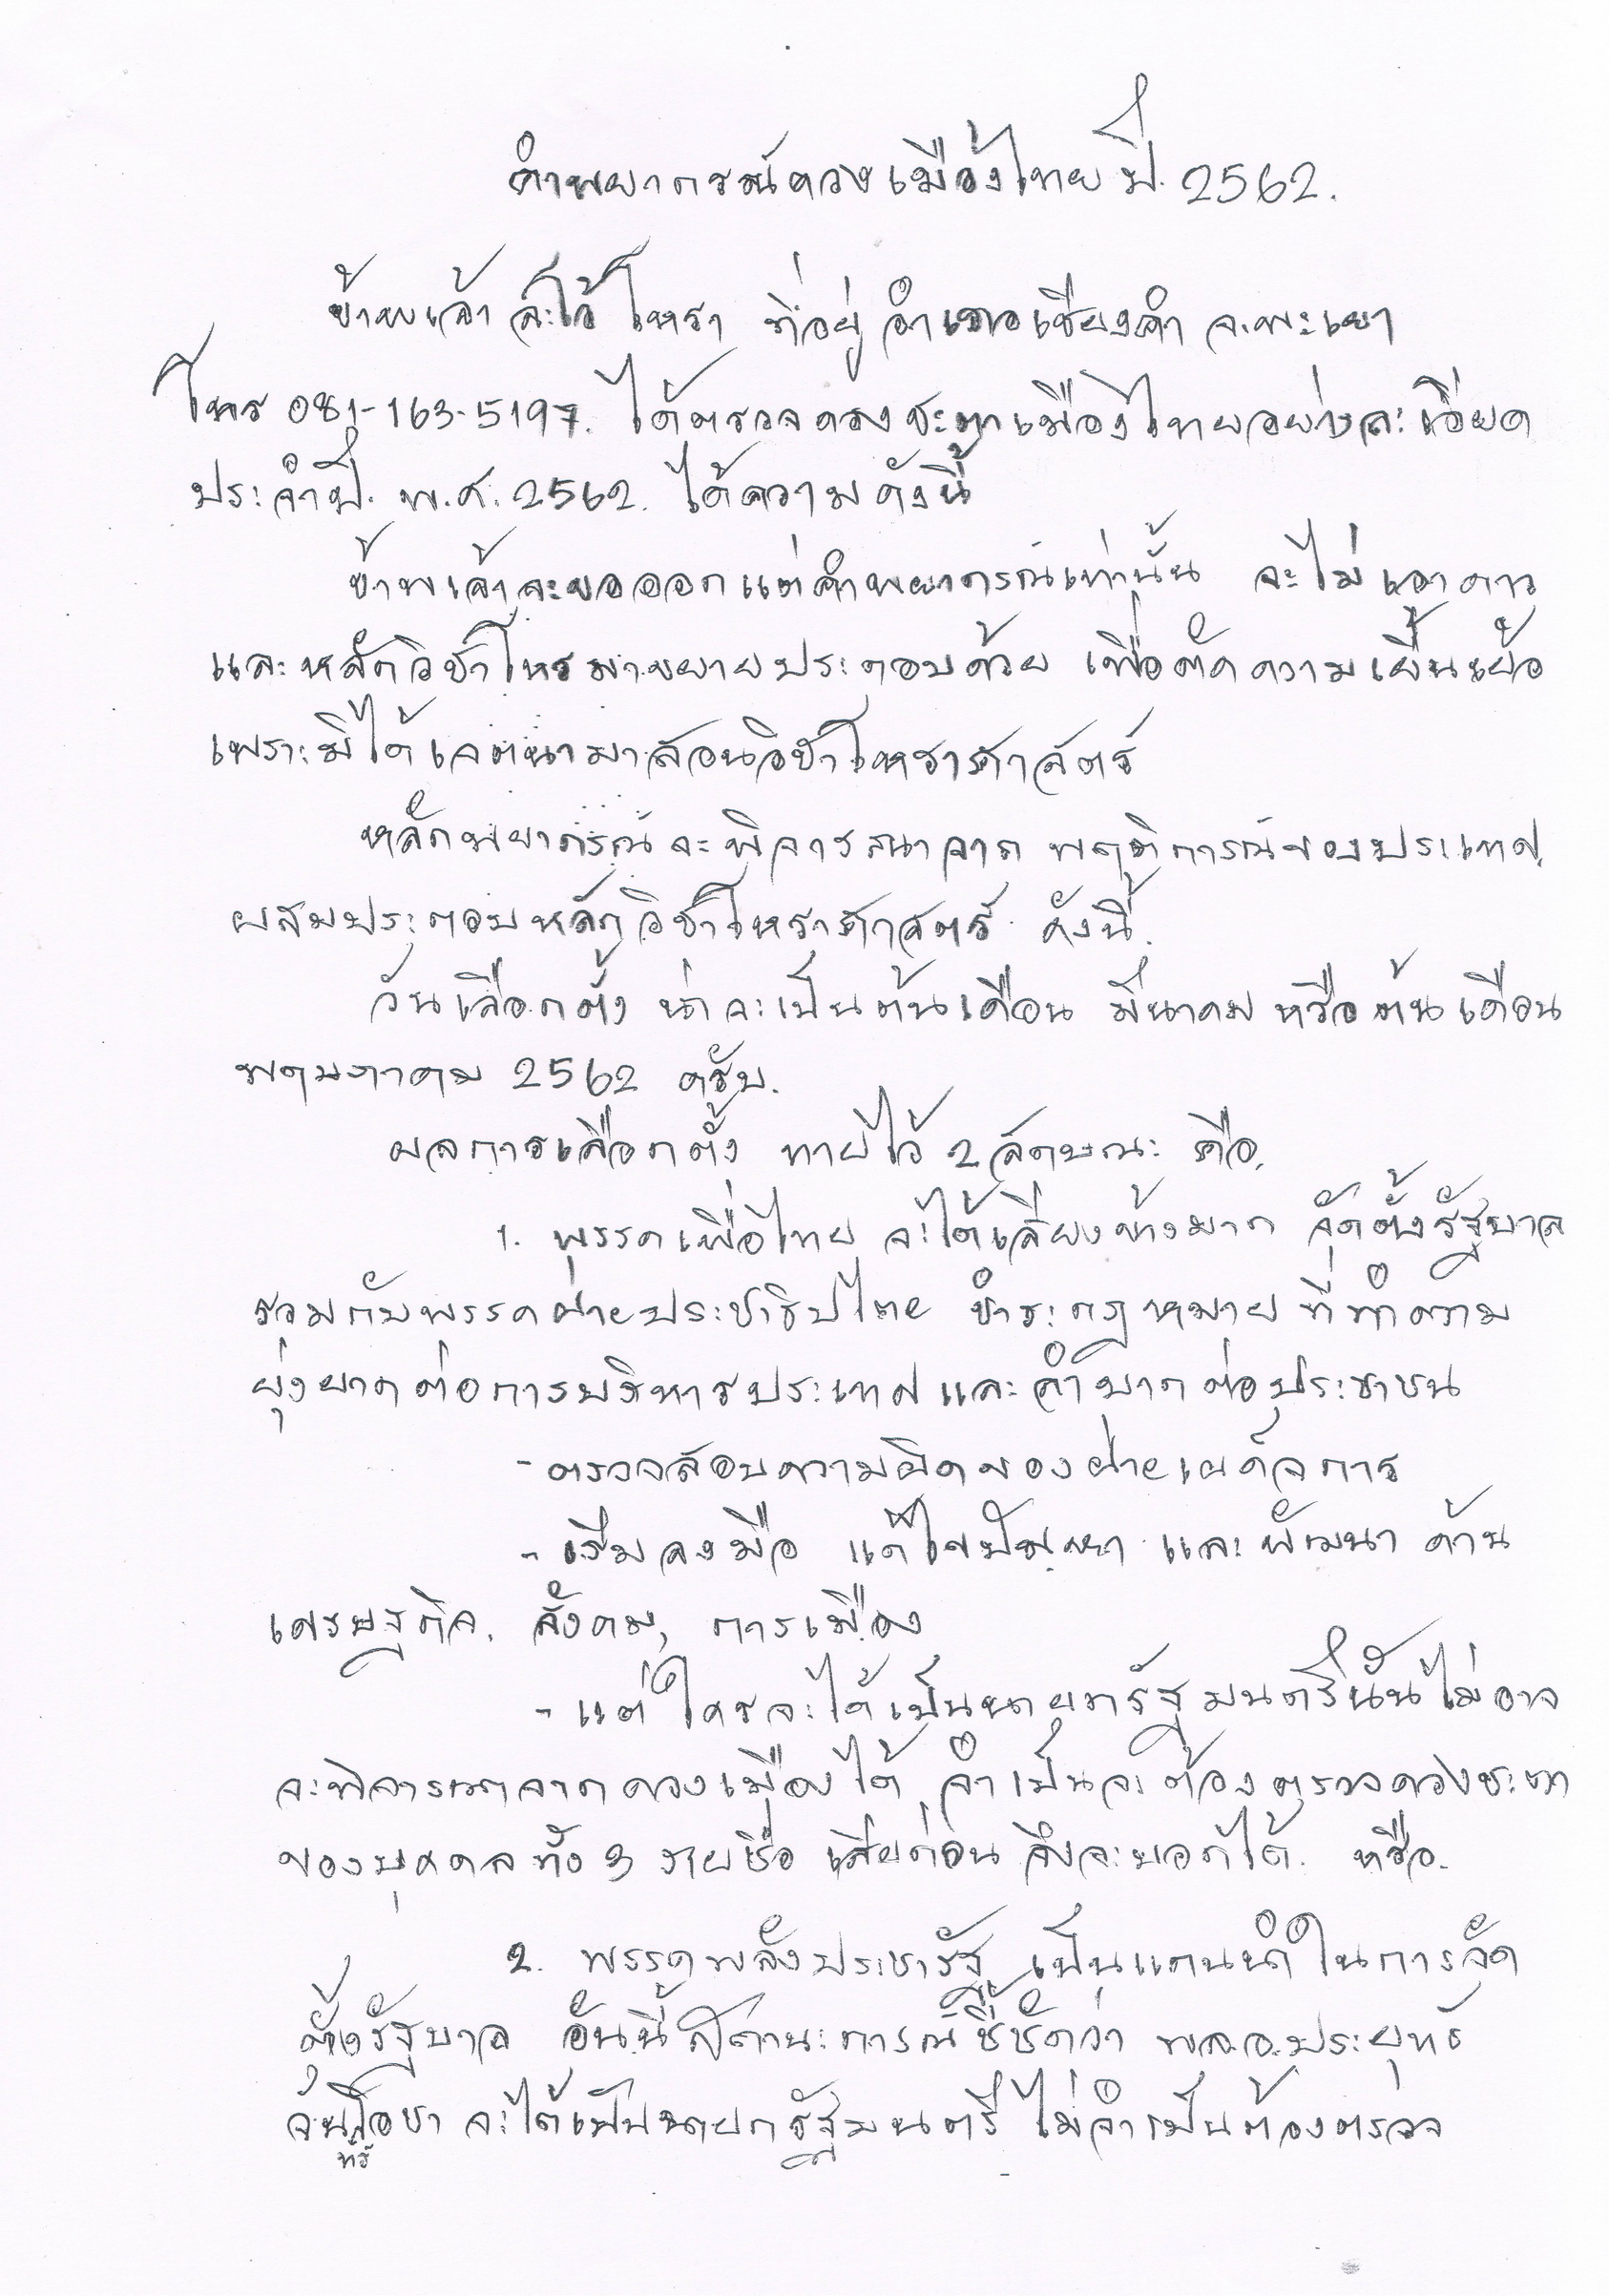 คำพยากรณ์ดวงเมืองไทย ปี 2562.
ข้าพเจ้า โหรา ที่อยู่ อำเภอเชียงคำ จ.พะเยา
โทร 081-163-5197. ได้ตรวจดวงชะตาเมืองไทยอย่างละเอียด
ประจำปี พ.ศ. 2562. ได้ความดังนี้
ข้าพเจ้าจะขอออกแต่คำพยากรณ์เท่านั้น จะไม่เอาดาว
และหลักวิชาโหรมาขยายประกอบด้วย เพื่อตัดความเยิ่นเย้อ
เพราะมิได้เจตนามาสอนวิชาโหราศาสตร์
หลักพยากรณ์จะพิจารณาจาก พฤติการณ์ของประเทศ
ผสมประกอบหลักวิชาโหราศาสตร์ ดังนี้.
วันเลือกตั้ง น่าจะเป็นต้นเดือน มีนาคม หรือต้นเดือน
พฤษภาคม 2562 ครับ.
ผลการเลือกตั้ง ทายไว้ 2 ลักษณะ คือ.
1. พรรคเพื่อไทย จะได้เสียงข้างมาก จัดตั้งรัฐบาล
รวมกับพรรคฝ่ายประชาธิปไตย ชำระกฎหมายที่ทำความ
ยุ่งยากต่อการบริหารประเทศและลำบากต่อประชาชน
- ตรวจสอบความผิดของฝ่ายเผด็จการ
- เริ่มลงมือ แก้ไขปัญหา และพัฒนา ด้าน
เศรษฐกิจ, สังคม, การเมือง
- แต่ใครจะได้เป็นนายกรัฐมนตรีนั้นไม่อาจ
จะพิจารณาจากดวงเมืองได้ จำเป็นจะต้องตรวจดวงชะตา
ของบุคคลทั้ง 3 รายชื่อ เสียก่อน จึงจะบอกได้. หรือ.
2. พรรคพลังประชารัฐ เป็นแกนนำในการจัด
ตั้งรัฐบาล อันนี้สถานะการณ์ชี้ชัดว่า พล.อ.ประยุทธ์
จันทร์โอชา จะได้เป็นนายกรัฐมนตรี ไม่จำเป็นต้องตรวจ